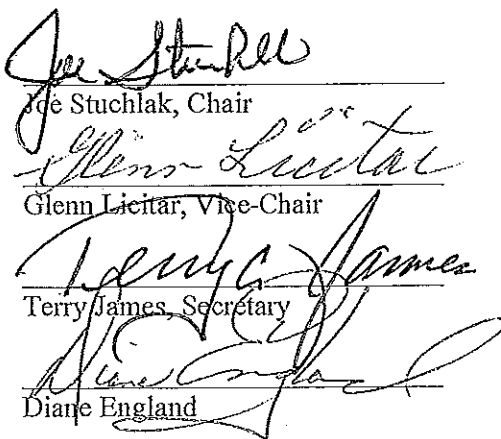 Joe Stuchlak
Joe Stuchlak, Chair
Glenn Licitar
Glenn Licitar, Vice-Chair
Terry C. James
Terry James, Secretary
Diane England
Diane England